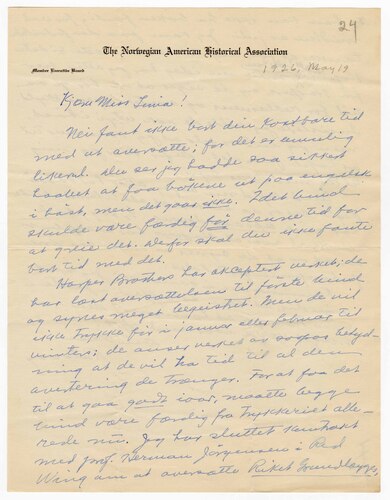 24
The Norwegian American Historical Association
Member Executive Board
1926, May 19
Kjære Miss Sima!
Nei fant ikke bort din kostbare tid
med at oversætte; for det er umulig
likevel. Du ser jeg hadde saa sikkert
haabet at faa bökene ut paa engelsk
i höst, men det gaar ikke. 2det bind
skulde være færdig för denne tid for
at greie det. Derfor skal du ikke
bort tid med det.
Harper Brothers har akceptert verket; de
har læst oversættelsen til förste bind
og synes meget begeistret. Men de vil
ikke trykke för i januar eller februar til
vinters; de anser verket av saapas betyd-
ning at de vil ha tid til al den
avertering de trænger. For at faa det
til at gaa godt iaar, maatte begge
bind være færdig fra trykkeriet alle-
rede nu. Jeg har sluttet kontrakt
med prof. Herman Jorgensen i Red
Wing om at oversætte Riket Grundlægges